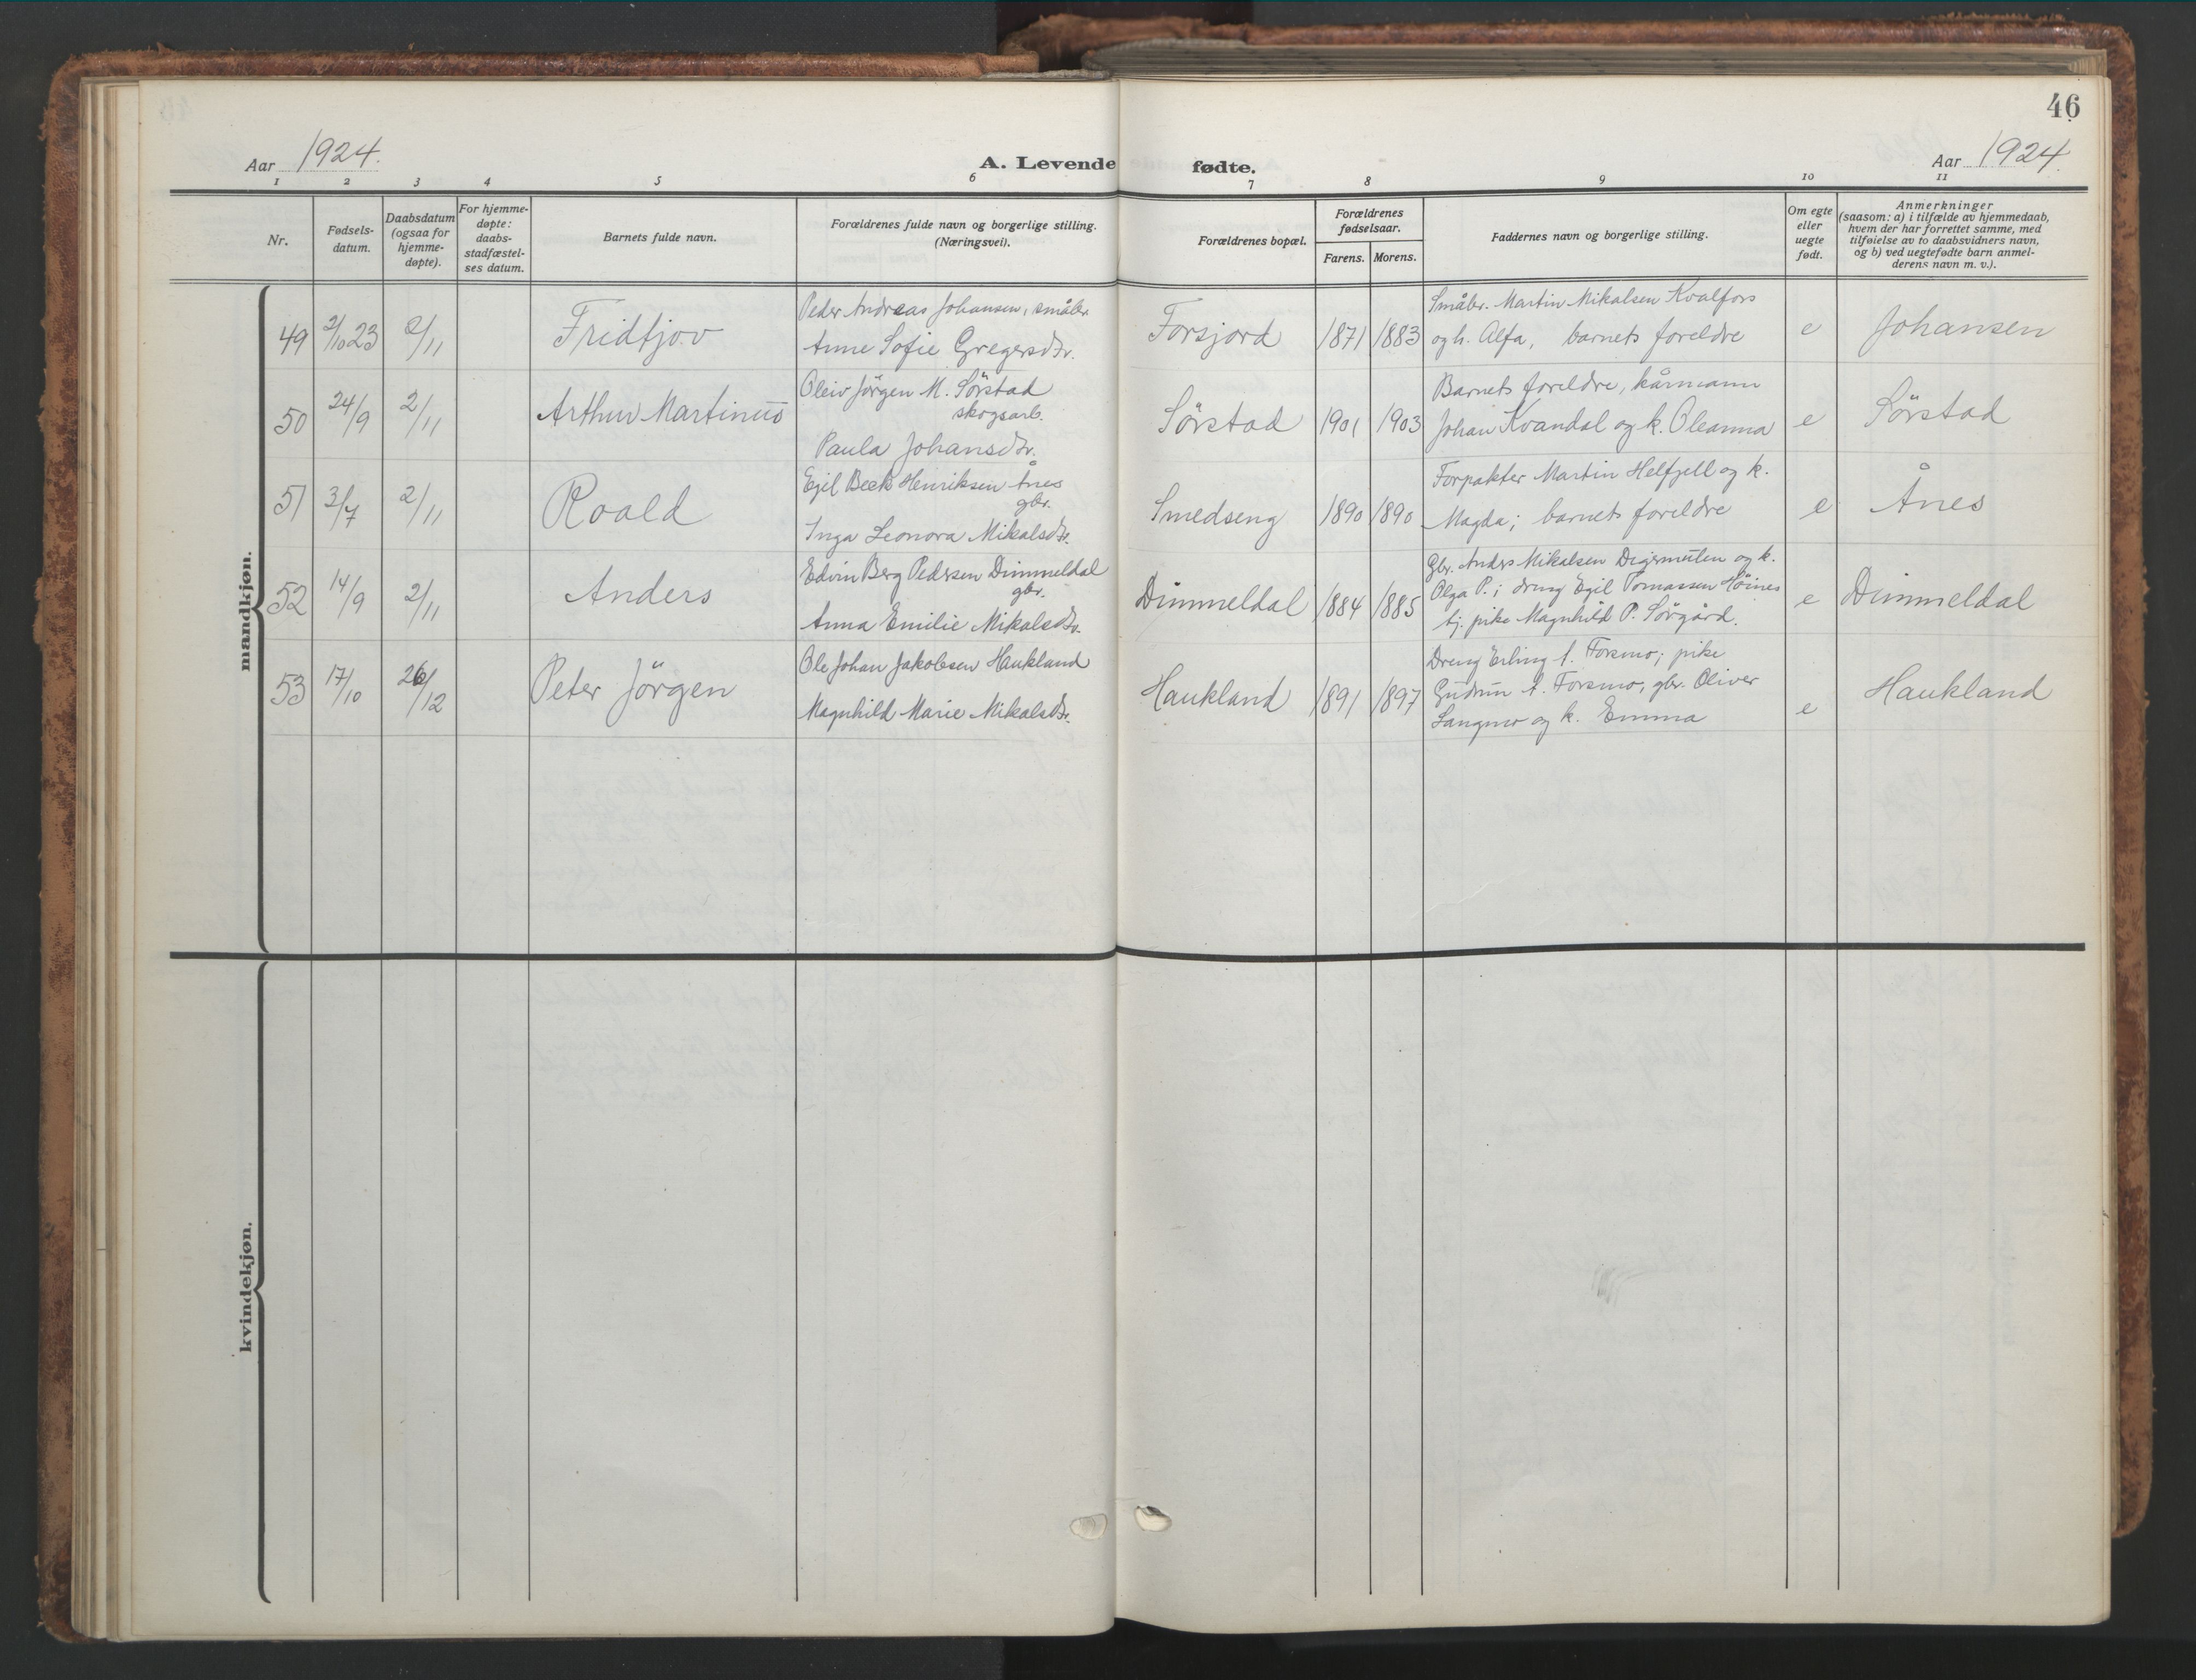 46
Aar 1924.
A. Levende fødte.
Aar 1924.
1 2 3 4 5 6 7 8 9 10 11
Nr.
Fødsels-
datum.
Daabsdatum
(ogsaa for
hjemme-
døpte).
For hjemme-
døpte:
daabs-
stadfæstel-
ses datum.
Barnets fulde navn.
Forældrenes fulde navn og borgerlige stilling.
(Næringsvei).
Forældrenes bopæl.
Forældrenes
fødselsaar.
Farens. Morens.
Faddernes navn og borgerlige stilling.
Om egte
eller
uegte
født.
Anmerkninger
(saasom: a) i tilfælde av hjemmedaab,
hvem der har forrettet samme, med
tilføielse av to daabsvidners navn,
og b) ved uegtefødte barn anmel-
derens navn m. v.).
mandkjøn.
49 2/10 23 2/11 Fridtjov
Peder Andreas Johansen, småbr.
Anne Sofie Gregersdtr.
Forsjord 1871 1883
Småbr. Martin Mikalsen Kvalfors
og h. Alfa, barnets foreldre
e Johansen
50 24/9 2/11 Arthur Martinus
Oleiv Jörgen M. Sörstad
skogsarb.
Paula Johansdtr.
Sörstad 1901 1903
Barnets foreldre, kårmann
Johan Kvandal og k. Oleanna
e Sörstad
51 3/7 2/11 Roald
Egil Beck Henriksen Ånes
gbr.
Inga Leonora Mikalsdtr.
Smedseng 1890 1890
Forpakter Martin Helfjell og k.
Magda; barnets foreldre
e Ånes
52 14/9 2/11 Anders
Edvin Berg Pedersen Dimmeldal
gbr.
Anna Emilie Mikalsdtr.
Dimmeldal 1884 1885
Gbr. Anders Mikalsen Digermulen og k.
Olga P.; dreng Egil Tomassen Höines
tj. pike Magnhild P. Sörgård.
e Dimmeldal
53 17/10 26/12 Peter Jörgen
Ole Johan Jakobsen Haukland
Magnhild Marie Mikalsdtr.
Haukland 1891 1897
Dreng Erling A. Forsmo; pike
Gudrun A. Forsmo, gbr. Oliver
Langmo og k. Emma
e Haukland
kvindekjøn.